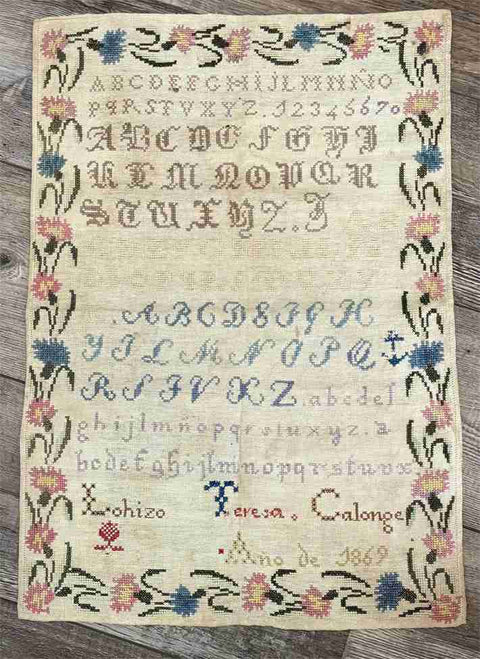 ABCDEFGHIJLMNÑO
PQRSTVXYZ.1234567
ABCDEFGHI
KLMNOPQR
STUXYZ.J
.ABCDEFGH
YJLMNÔPQ
RSTVXZ.abcdef
ghijlmñopqrstuxyz.a
bcdefghijlmnopqrstuvx
Lohizo Teresa. Calonge
.Año de 1869